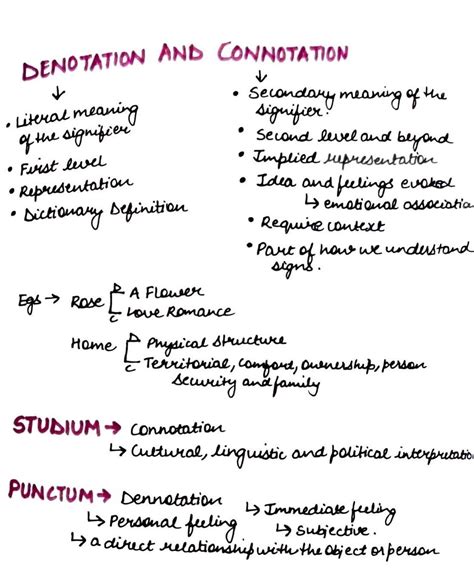 DENOTATION AND CONNOTATION
↓
• Literal meaning
of the signifier
• First level
• Representation
• Dictionary Definition
↓
• Secondary meaning of the
signifier.
• Second level and beyond
• Implied representation
• Idea and feelings evoked
↳ emotional associatio
• Require context
• Part of how we understand
signs.
Egs → Rose D A Flower
C Love Romance
Home D Physical Structure
C Territorial, Comfort, ownership, person
security and family
STUDIUM → Connotation
↳ Cultural, linguistic and political interpretatio
PUNCTUM → Dennotation
↳ Personal feeling
↳ Immediate feeling
↳ Subjective.
↳ a direct relationship with the object or person